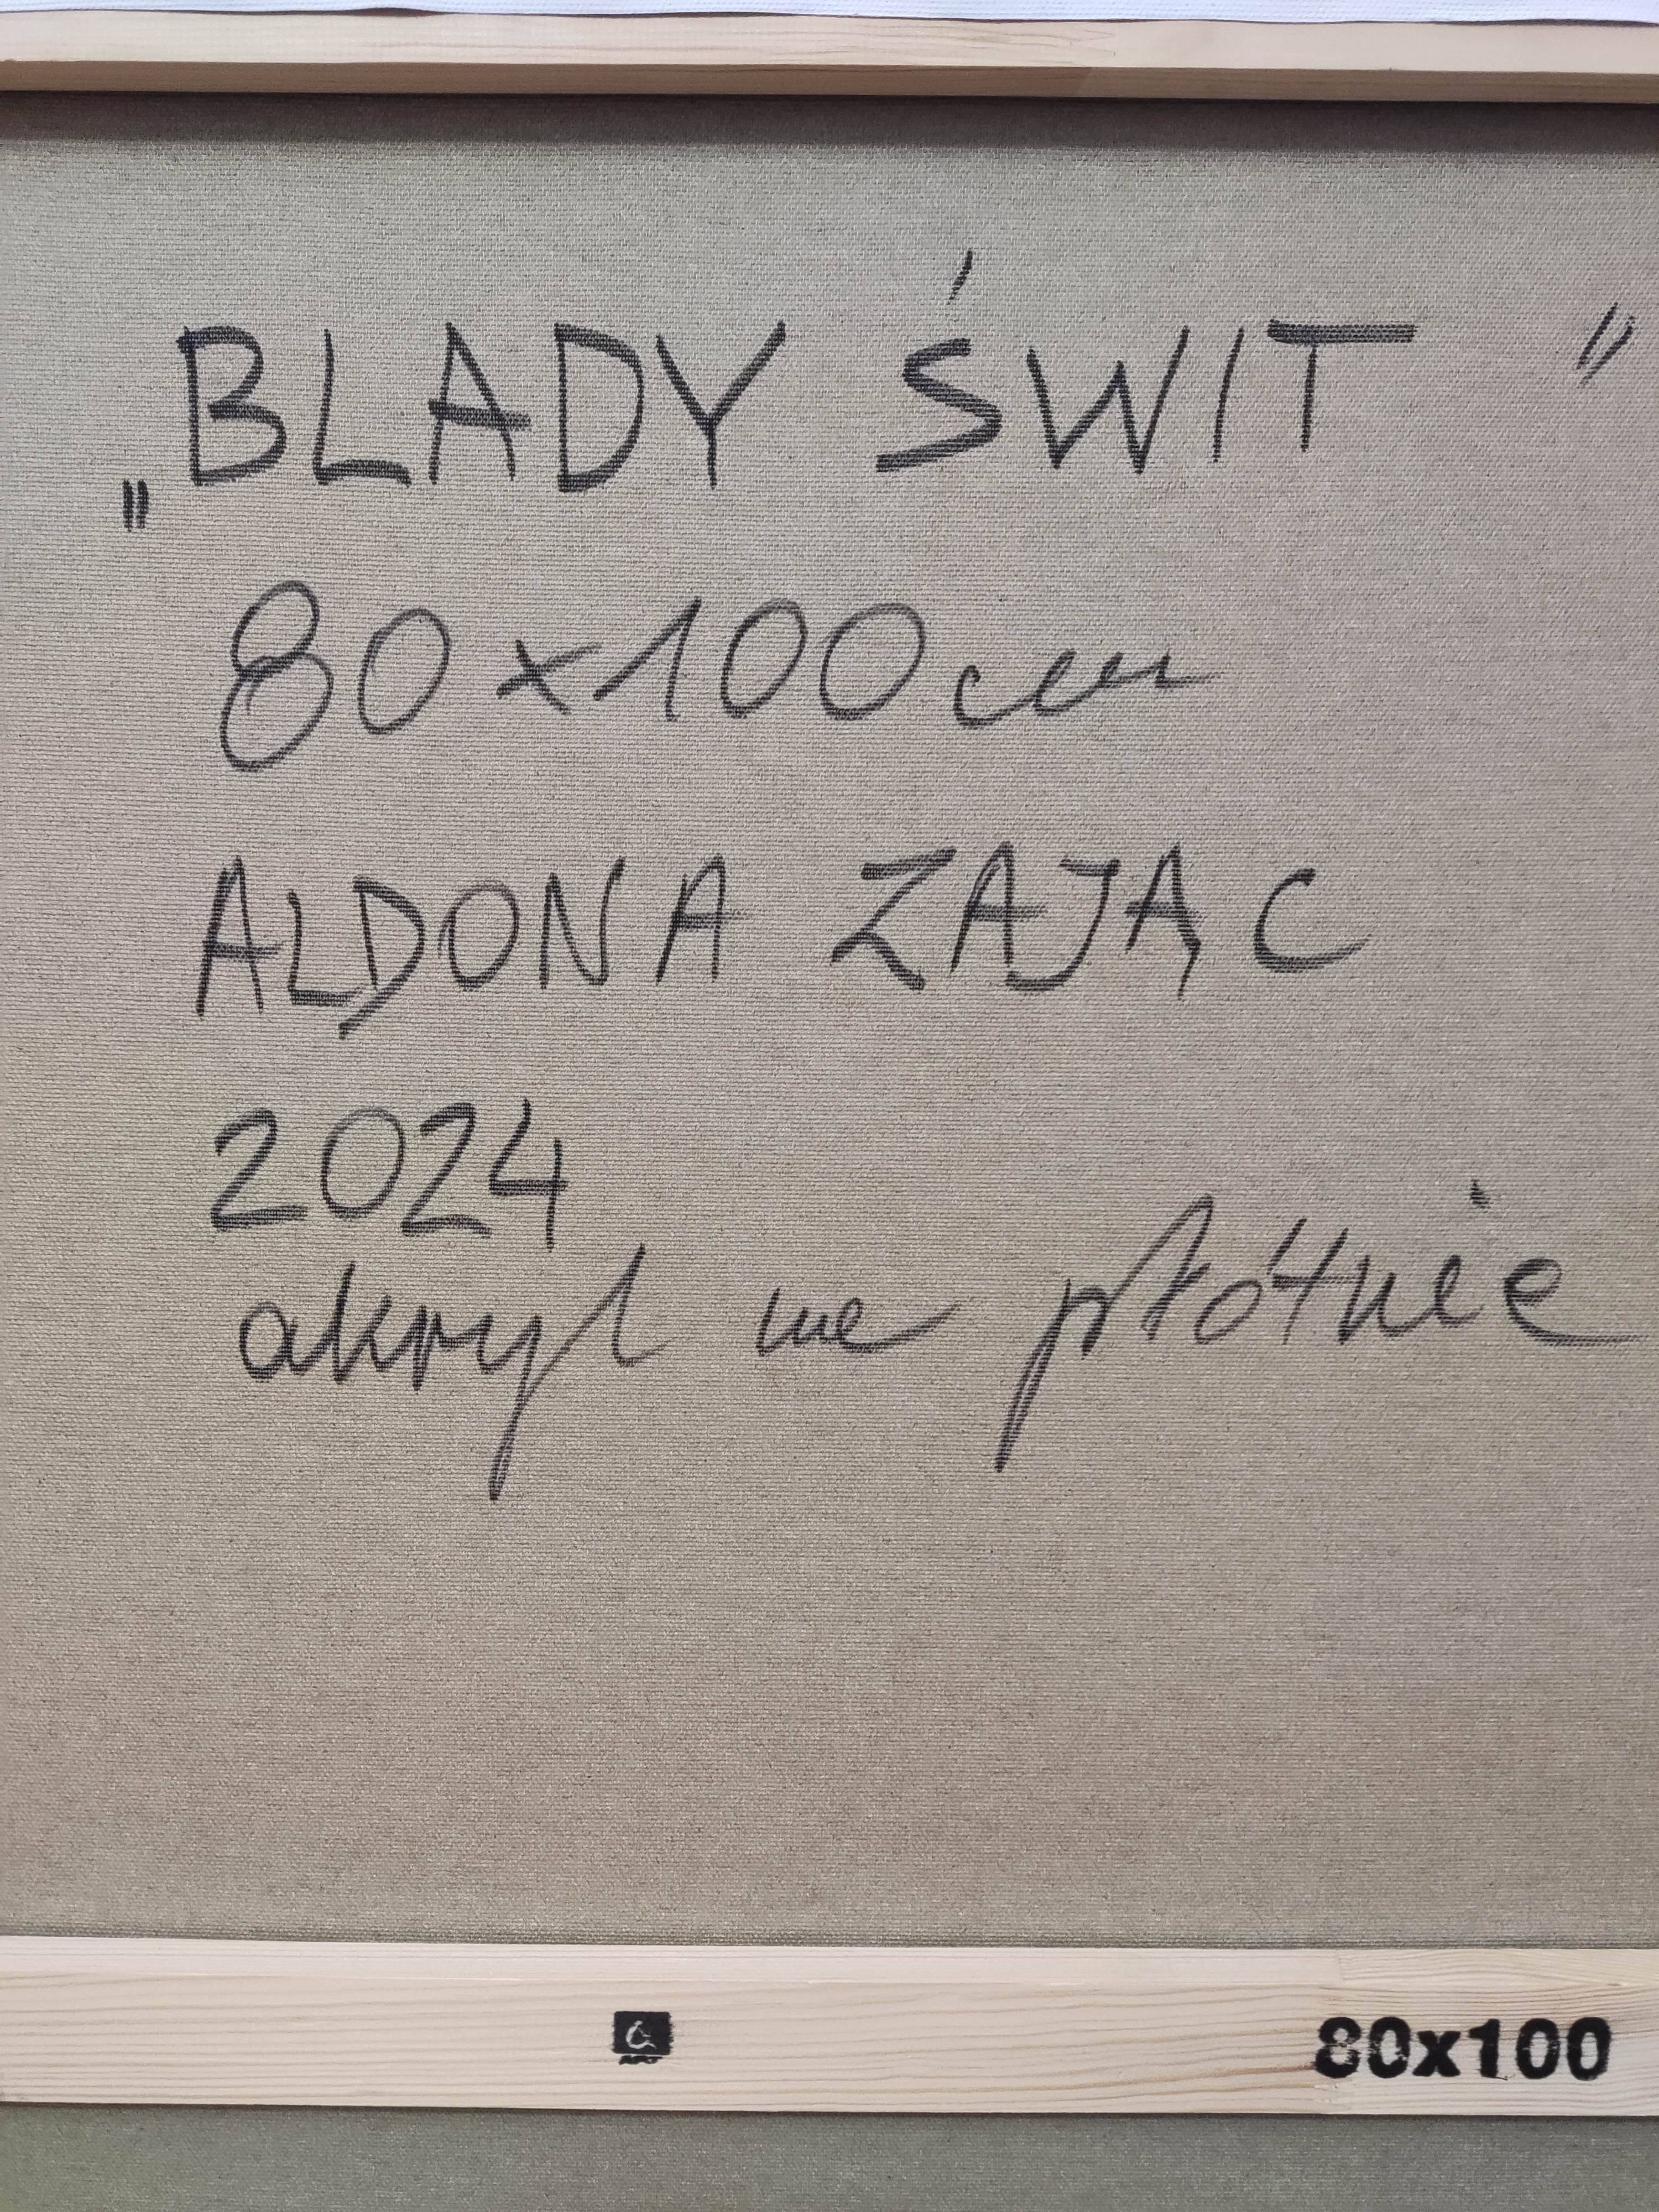 „BLADY ŚWIT”
80x100cm
ALDONA ZAJĄC
2024
akryl na płótnie
80x100